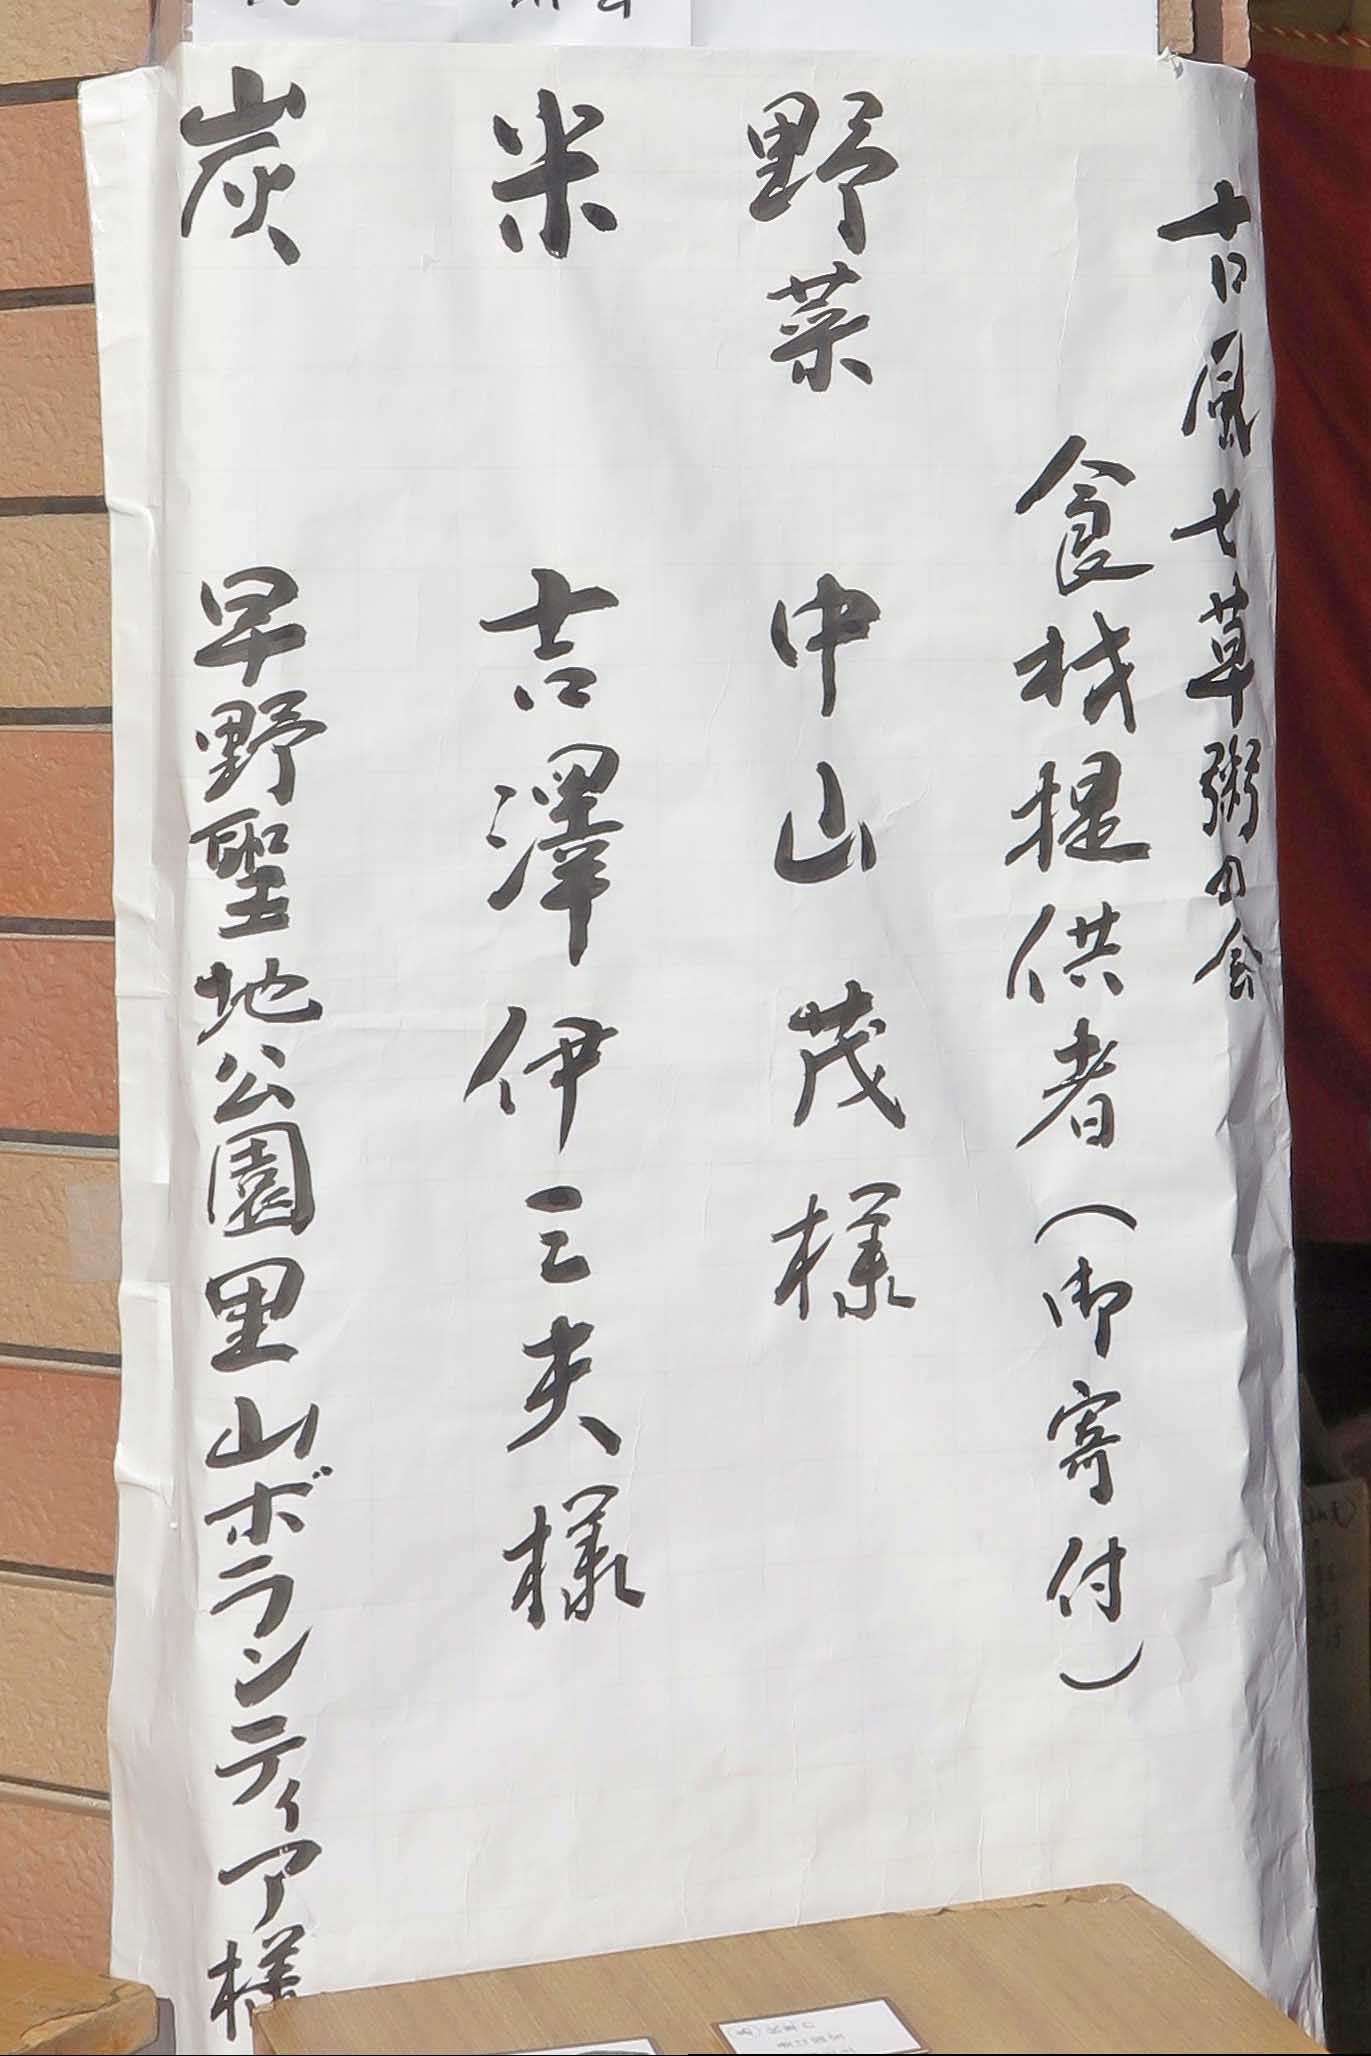 古風七草粥の会
食材提供者(御寄付)
野菜 中山茂様
米 吉澤伊三夫様
炭 早野聖地公園里山ボランティア様